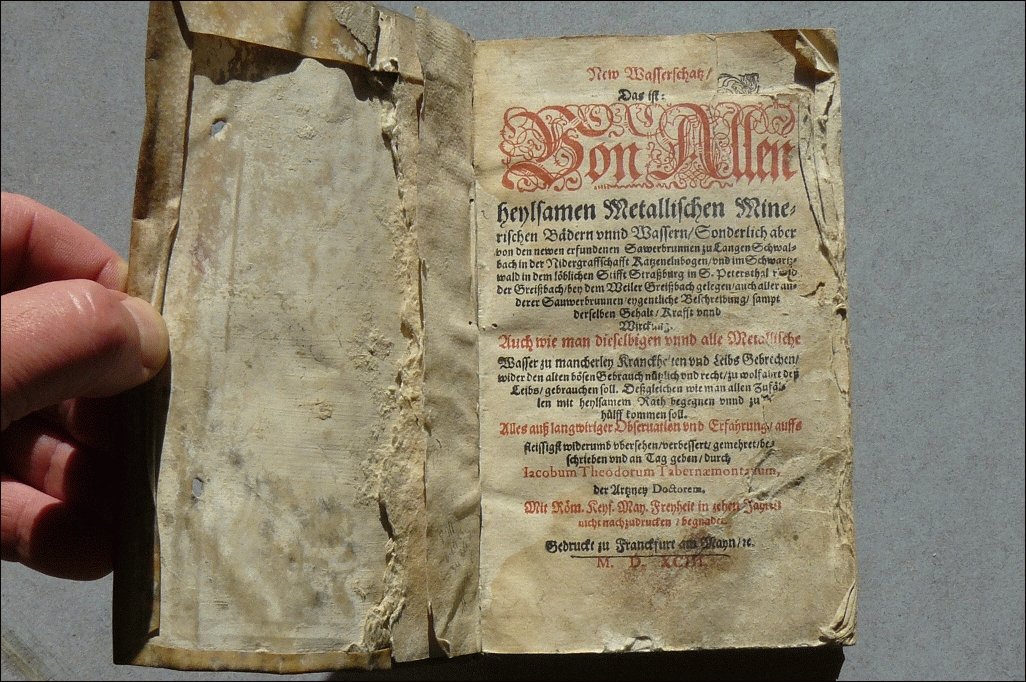 New Wasserschatz/
Das ist:
Von Allen
heylsamen Metallischen Mine-
rischen Bädern vnnd Wassern/ Sonderlich aber
von den newen erfundenen Sawerbrunnen zu Langen Schwal-
bach in der Nidergraffschafft Katzenelnbogen/ vnd im Schwartz-
wald in dem löblichen Stifft Straßburg in S. Petersthal
der Greißbach/ bey dem Weiler Greißbach gelegen/ auch aller an-
derer Sauwerbrunnen/ eygentliche Beschreibung/ sampt
derselben Gehalt/ Krafft vnnd
Wirckung.
Auch wie man dieselbigen vnnd alle Metallische
Wasser zu mancherley Kranckheiten vnd Leibs Gebrechen/
wider den alten bösen Gebrauch nützlich vnd recht/ zu wolfahrt deß
Leibs/ gebrauchen soll. Deßgleichen wie man allen Zufäl-
len mit heylsamem Rath begegnen vnnd zu
hülff kommen soll.
Alles auß langwiriger Observation vnd Erfahrung/ auffs
fleissigst widerumb vbersehen/ verbessert/ gemehret/ be-
schrieben vnd an Tag geben/ durch
Iacobum Theodorum Tabernæmontanum,
der Artzney Doctorem.
Mit Röm. Keys. May. Freyheit in zehen Jahren
nicht nachzudrucken/ begnadet.
Gedruckt zu Franckfurt am Mayn/ ꝛc.
M. D. XCIII.